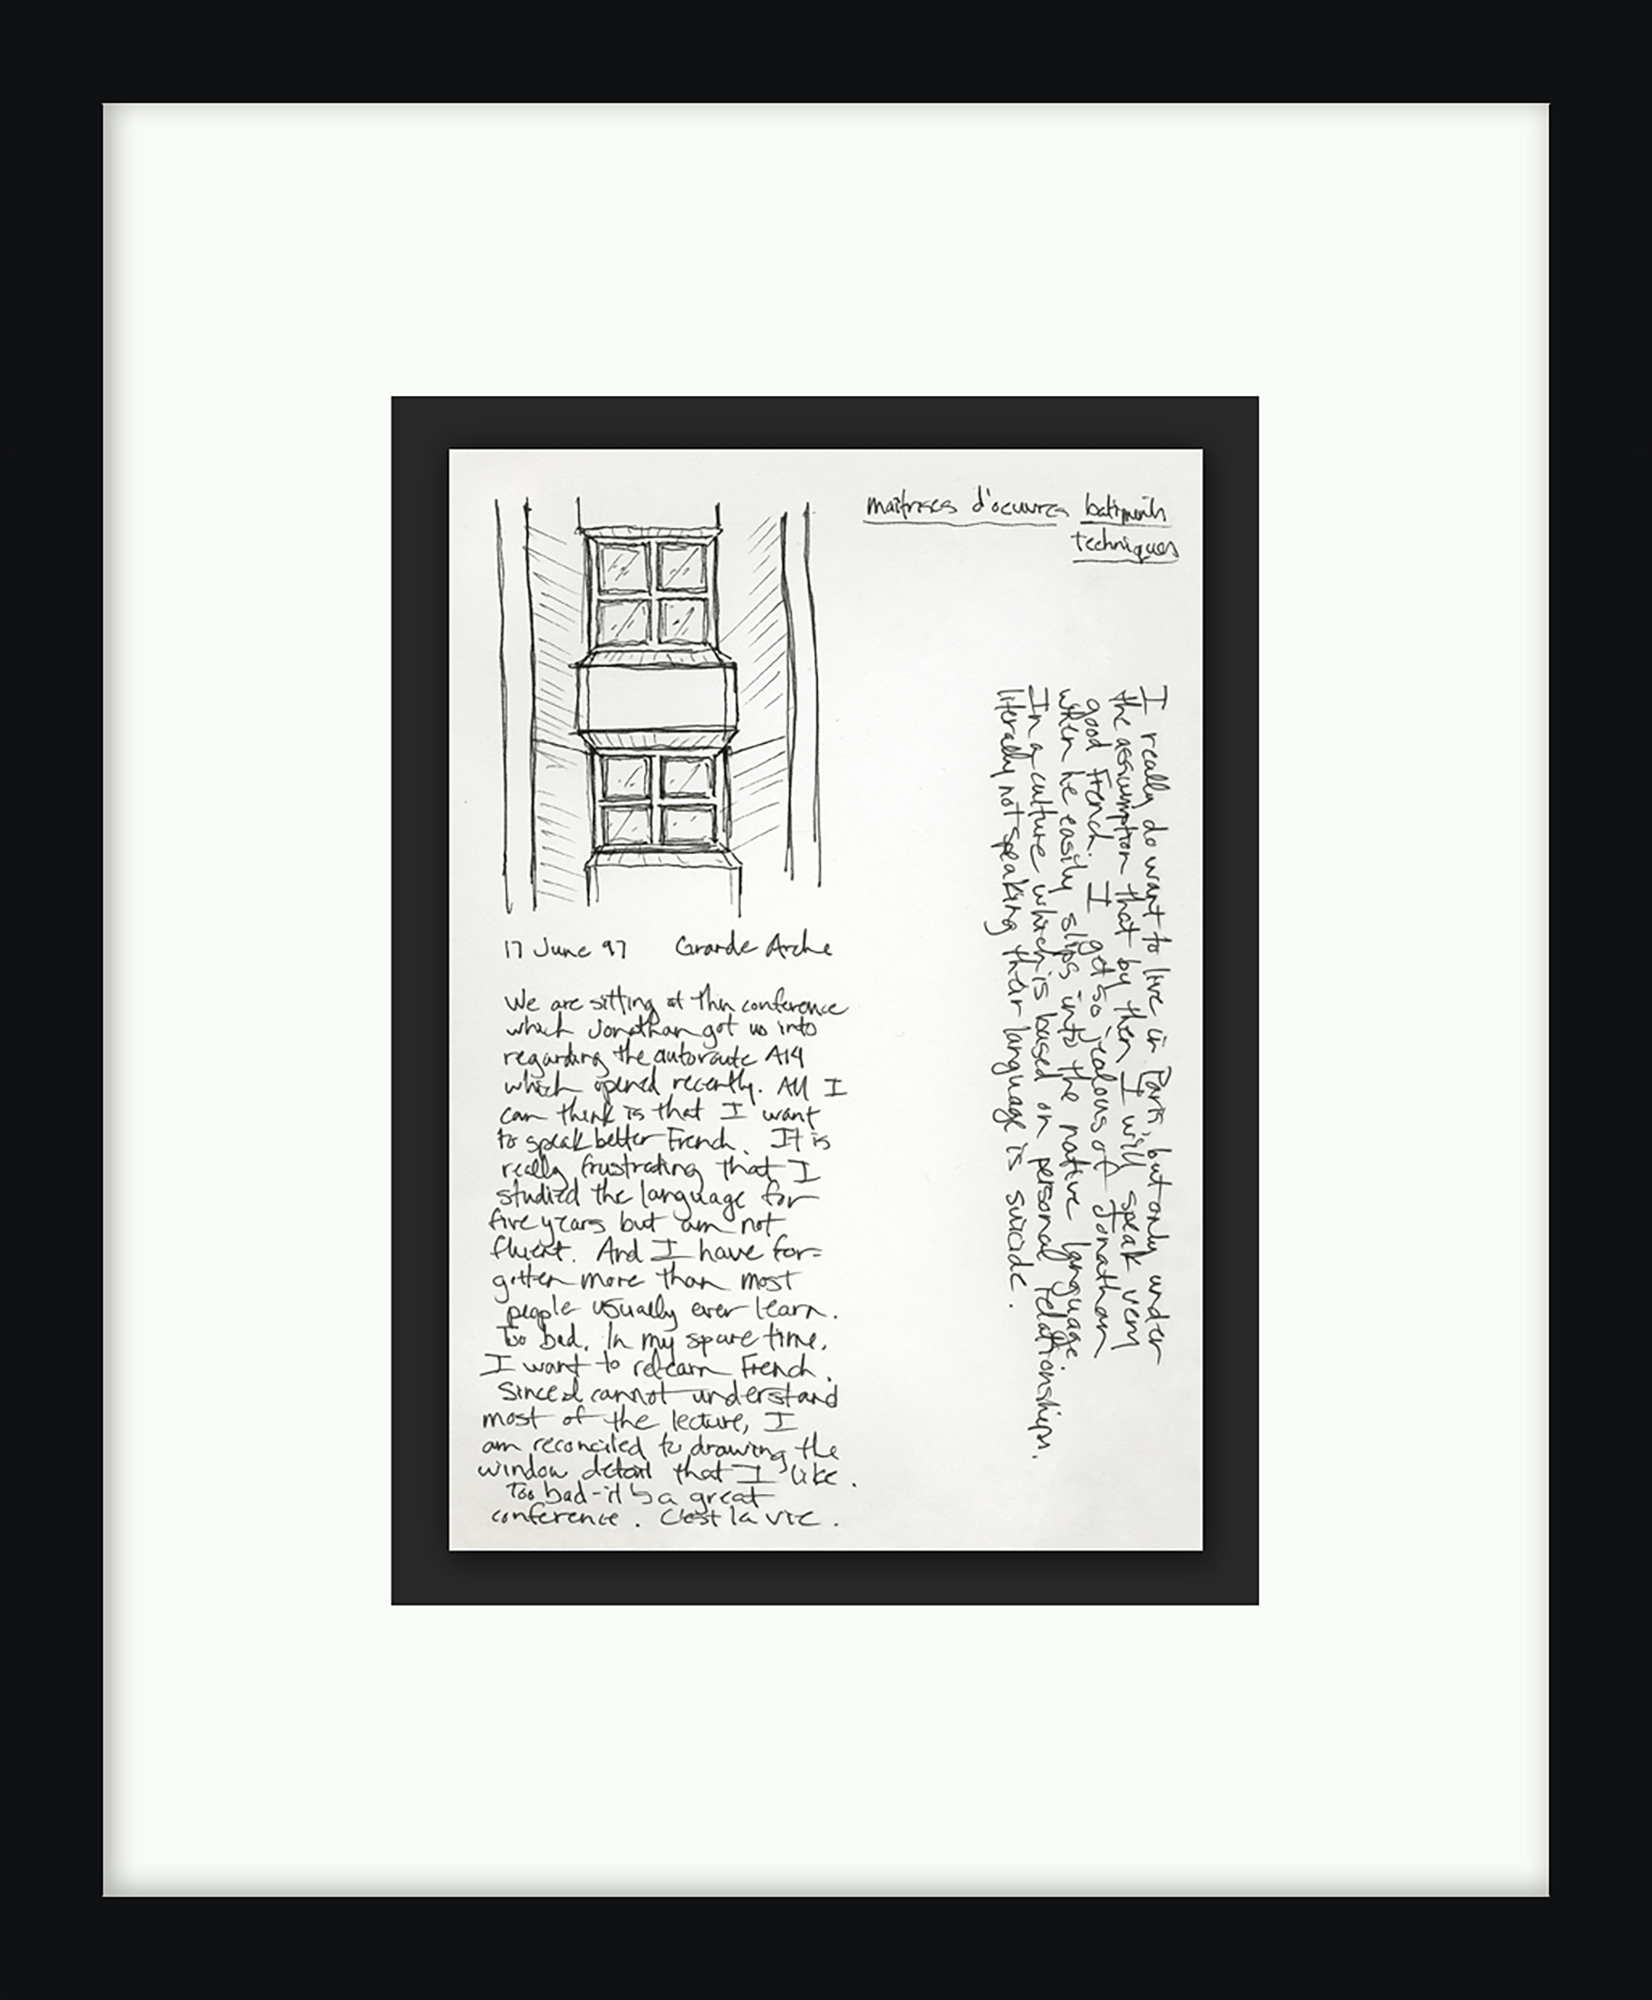 maitrises d'oeuvres batiments
techniques
17 June 97 Grande Arche
We are sitting at this conference
which Jonathan got us into
regarding the autoroute A14
which opened recently. All I
can think is that I want
to speak better French. It is
really frustrating that I
studied the language for
five years but am not
fluent. And I have for=
gotten more than most
people usually ever learn.
Too bad. In my spare time,
I want to relearn French.
Since I cannot understand
most of the lecture, I
am reconciled to drawing the
window detail that I like.
Too bad-it's a great
conference. C'est la vie.
I really do want to live in Paris, but only under
the assumption that by then I will speak very
good French. I get so jealous of Jonathan
when he easily slips into the native language.
In a culture which is based on personal relationships.
literally not speaking their language is suicide.